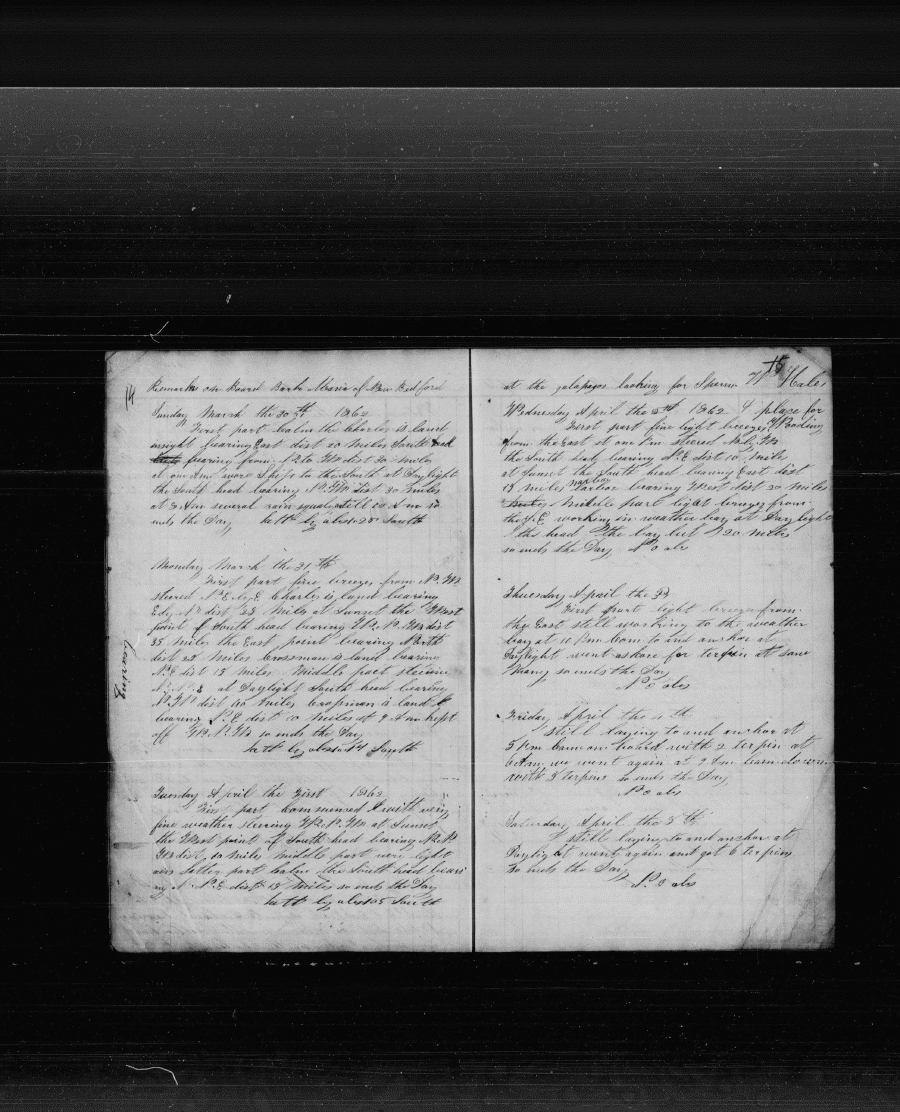 14
Remarks on Board Bark Maria of New Bedford
Sunday March the 30th 1862
First part Calm the Charles is land
bearing East dist 20 miles South head
bearing from N to W dist 30 miles
at one Am wore Ship to the South at Daylight
the South head bearing N. W dist 30 miles
at 3 Am several rain squals still 10 Am so
ends the Day Latt by abs 1.25 South
Monday March the 31th
First part fine breeze from N. W
steered N. E. by E Charles is land bearing
E. by N dist 23 miles at Sunset the West
point of South head bearing W. N. W dist
35 miles the East point bearing North
dist 22 miles Crossman is land bearing
N. E dist 15 miles Middle part steering
N. N. E at Daylight South head bearing
N. W dist 40 miles Crapman is land
bearing N. E dist 10 miles at 9 Am kept
off W. N. W so ends the Day
Latt by abs 1.14 South
bearing
Tuesday April the First 1862
First part Commenced with very
fine weather steering W. N. W at Sunset
the West point of South head bearing N. N.
W dist 10 miles Middle part very light
airs Latter part Calm the South head beari
ng N. N. E dist 18 miles so ends the Day
Latt by abs 1.05 South
15
at the galapagos looking for Sperm Whales
Wednesday April the 2nd 1862 4 place for Wooding
First part fine light breeze
from the East at one Pm steered by W
the South head bearing N. E dist 10 miles
at Sunset the South head bearing East dist
13 miles harbor bearing West dist 20 miles
Middle part light breezes from
the S. E working in weather bay at Day light
the head the bay dist 20 miles
so ends the Day No abs
Thursday April the 3d
First part light breeze from
the East still working to the weather
bay at 10 Pm Come to and anchor at
Daylight went ashore for terpin at sun
so ends the Day
No abs
Friday April the 4th
still laying to and anchor at
5 Pm Came on board with 2 terpin at
6 Am we went again at 9 Am Came down
with 3 terpins so ends the Day
No abs
Saturday April the 5th
still laying to and anchor at
Daylight went again and got 6 terpins
so ends the Day
No abs